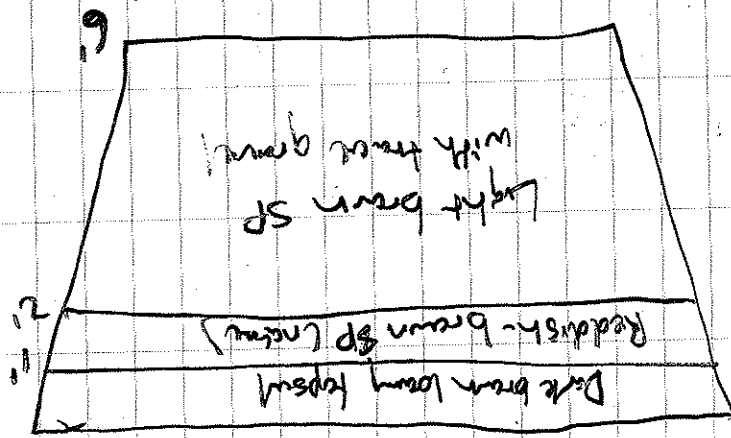 Dark brown loamy topsoil
1'
Reddish-brown SP (native)
2'
Light brown SP
with trace gravel
6'